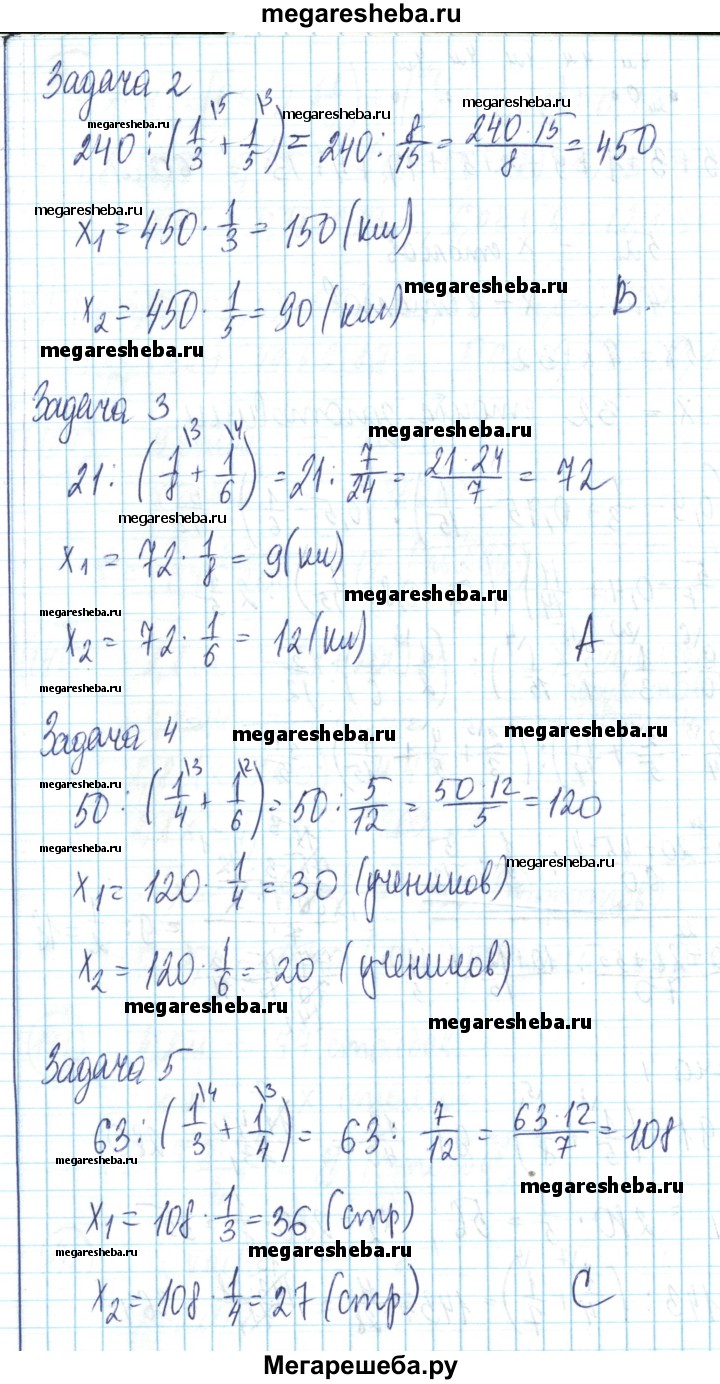 megaresheba.ru
Задача 2
megaresheba.ru megaresheba.ru megaresheba.ru
240 : (1/3 \5 + 1/5 \3) = 240 : 8/15 = 240·15/8 = 450
megaresheba.ru
x₁ = 450 · 1/3 = 150 (км)
megaresheba.ru
x₂ = 450 · 1/5 = 90 (км) B.
megaresheba.ru
Задача 3
megaresheba.ru
21 : (1/8 \3 + 1/6 \4) = 21 : 7/24 = 21·24/7 = 72
megaresheba.ru
x₁ = 72 · 1/8 = 9 (км)
megaresheba.ru
megaresheba.ru
x₂ = 72 · 1/6 = 12 (км) A
megaresheba.ru
Задача 4
megaresheba.ru megaresheba.ru
megaresheba.ru megaresheba.ru
50 : (1/4 \3 + 1/6 \2) = 50 : 5/12 = 50·12/5 = 120
megaresheba.ru megaresheba.ru
x₁ = 120 · 1/4 = 30 (учеников)
x₂ = 120 · 1/6 = 20 (учеников)
megaresheba.ru megaresheba.ru
Задача 5
63 : (1/3 \4 + 1/4 \3) = 63 : 7/12 = 63·12/7 = 108
megaresheba.ru megaresheba.ru
x₁ = 108 · 1/3 = 36 (стр)
megaresheba.ru megaresheba.ru
x₂ = 108 · 1/4 = 27 (стр) C
Мегарешеба.ру